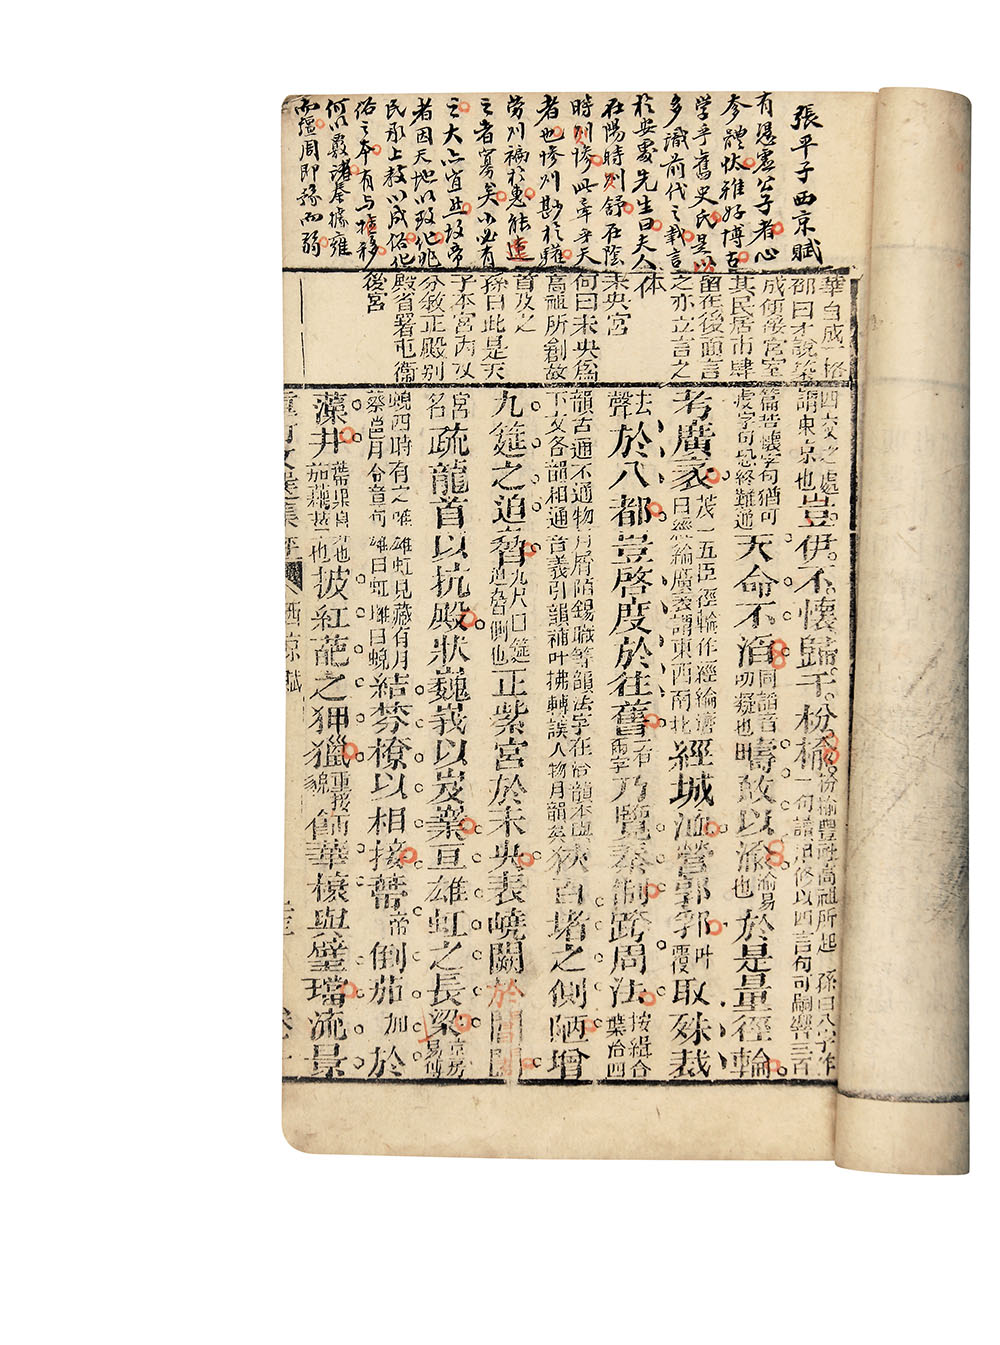 張平子西京賦
有憑虛公子者心
奓體忲雅好博古
學乎舊史氏是以
多識前代之載言
於安處先生曰夫人
在陽時則舒在陰
時則慘此牽乎天
者也慘則尠於驩
勞則褊於惠能違
之者寡矣小必有
之大亦宜然故帝
者因天地以致化兆
民承上教以成俗化
俗之本有與推移
何以覈諸秦據雍
而彊周即豫而弱
華自成一格
邵曰才說築
成便接宮室
其民居市肆
留在後面言
之亦立言之
体
未央宮
何曰未央為
高祖所創故
首及之
孫曰此是天
子本宮內又
分敘正殿别
殿省署屯衞
後宮
四交之處謂東京也豈伊不懷歸于枌榆枌榆豐社高祖所起 孫曰八字作一句讀但修以四言句可嗣響三百
篇昔懷字句猶可虔字句恐終難通天命不滔同諂音叨疑也疇敢以渝渝易也於是量徑輪
考廣袤茂一五臣徑輪作經綸濟曰經綸廣袤謂東西南北經城洫營郭郛叶覆取殊裁
法聲於八都豈啓度於往舊一石兩字乃覽秦制跨周法按緝合葉洽四
韻古通不通物月屑陌錫職等韻法字在洽韻本與下文各韻相通音義引韻補叶拂轉誤人物月韻矣狹百堵之側陋增
九筵之迫脅九尺曰筵迫脅側也正紫宮於未央表嶢闕於閶闔
宮名疏龍首以抗殿狀巍峩以岌嶪亘雄虹之長梁京房易傳
蜺四時有之唯雄虹見藏有月蔡邕月令章句雄曰虹雌曰蜺結棼橑以相接蔕帝倒茄加於
藻井蔕果鼻也茄藕莖下也披紅葩之狎獵重接貌飾華榱與璧璫流景
重訂文選集評 西京賦 卷一